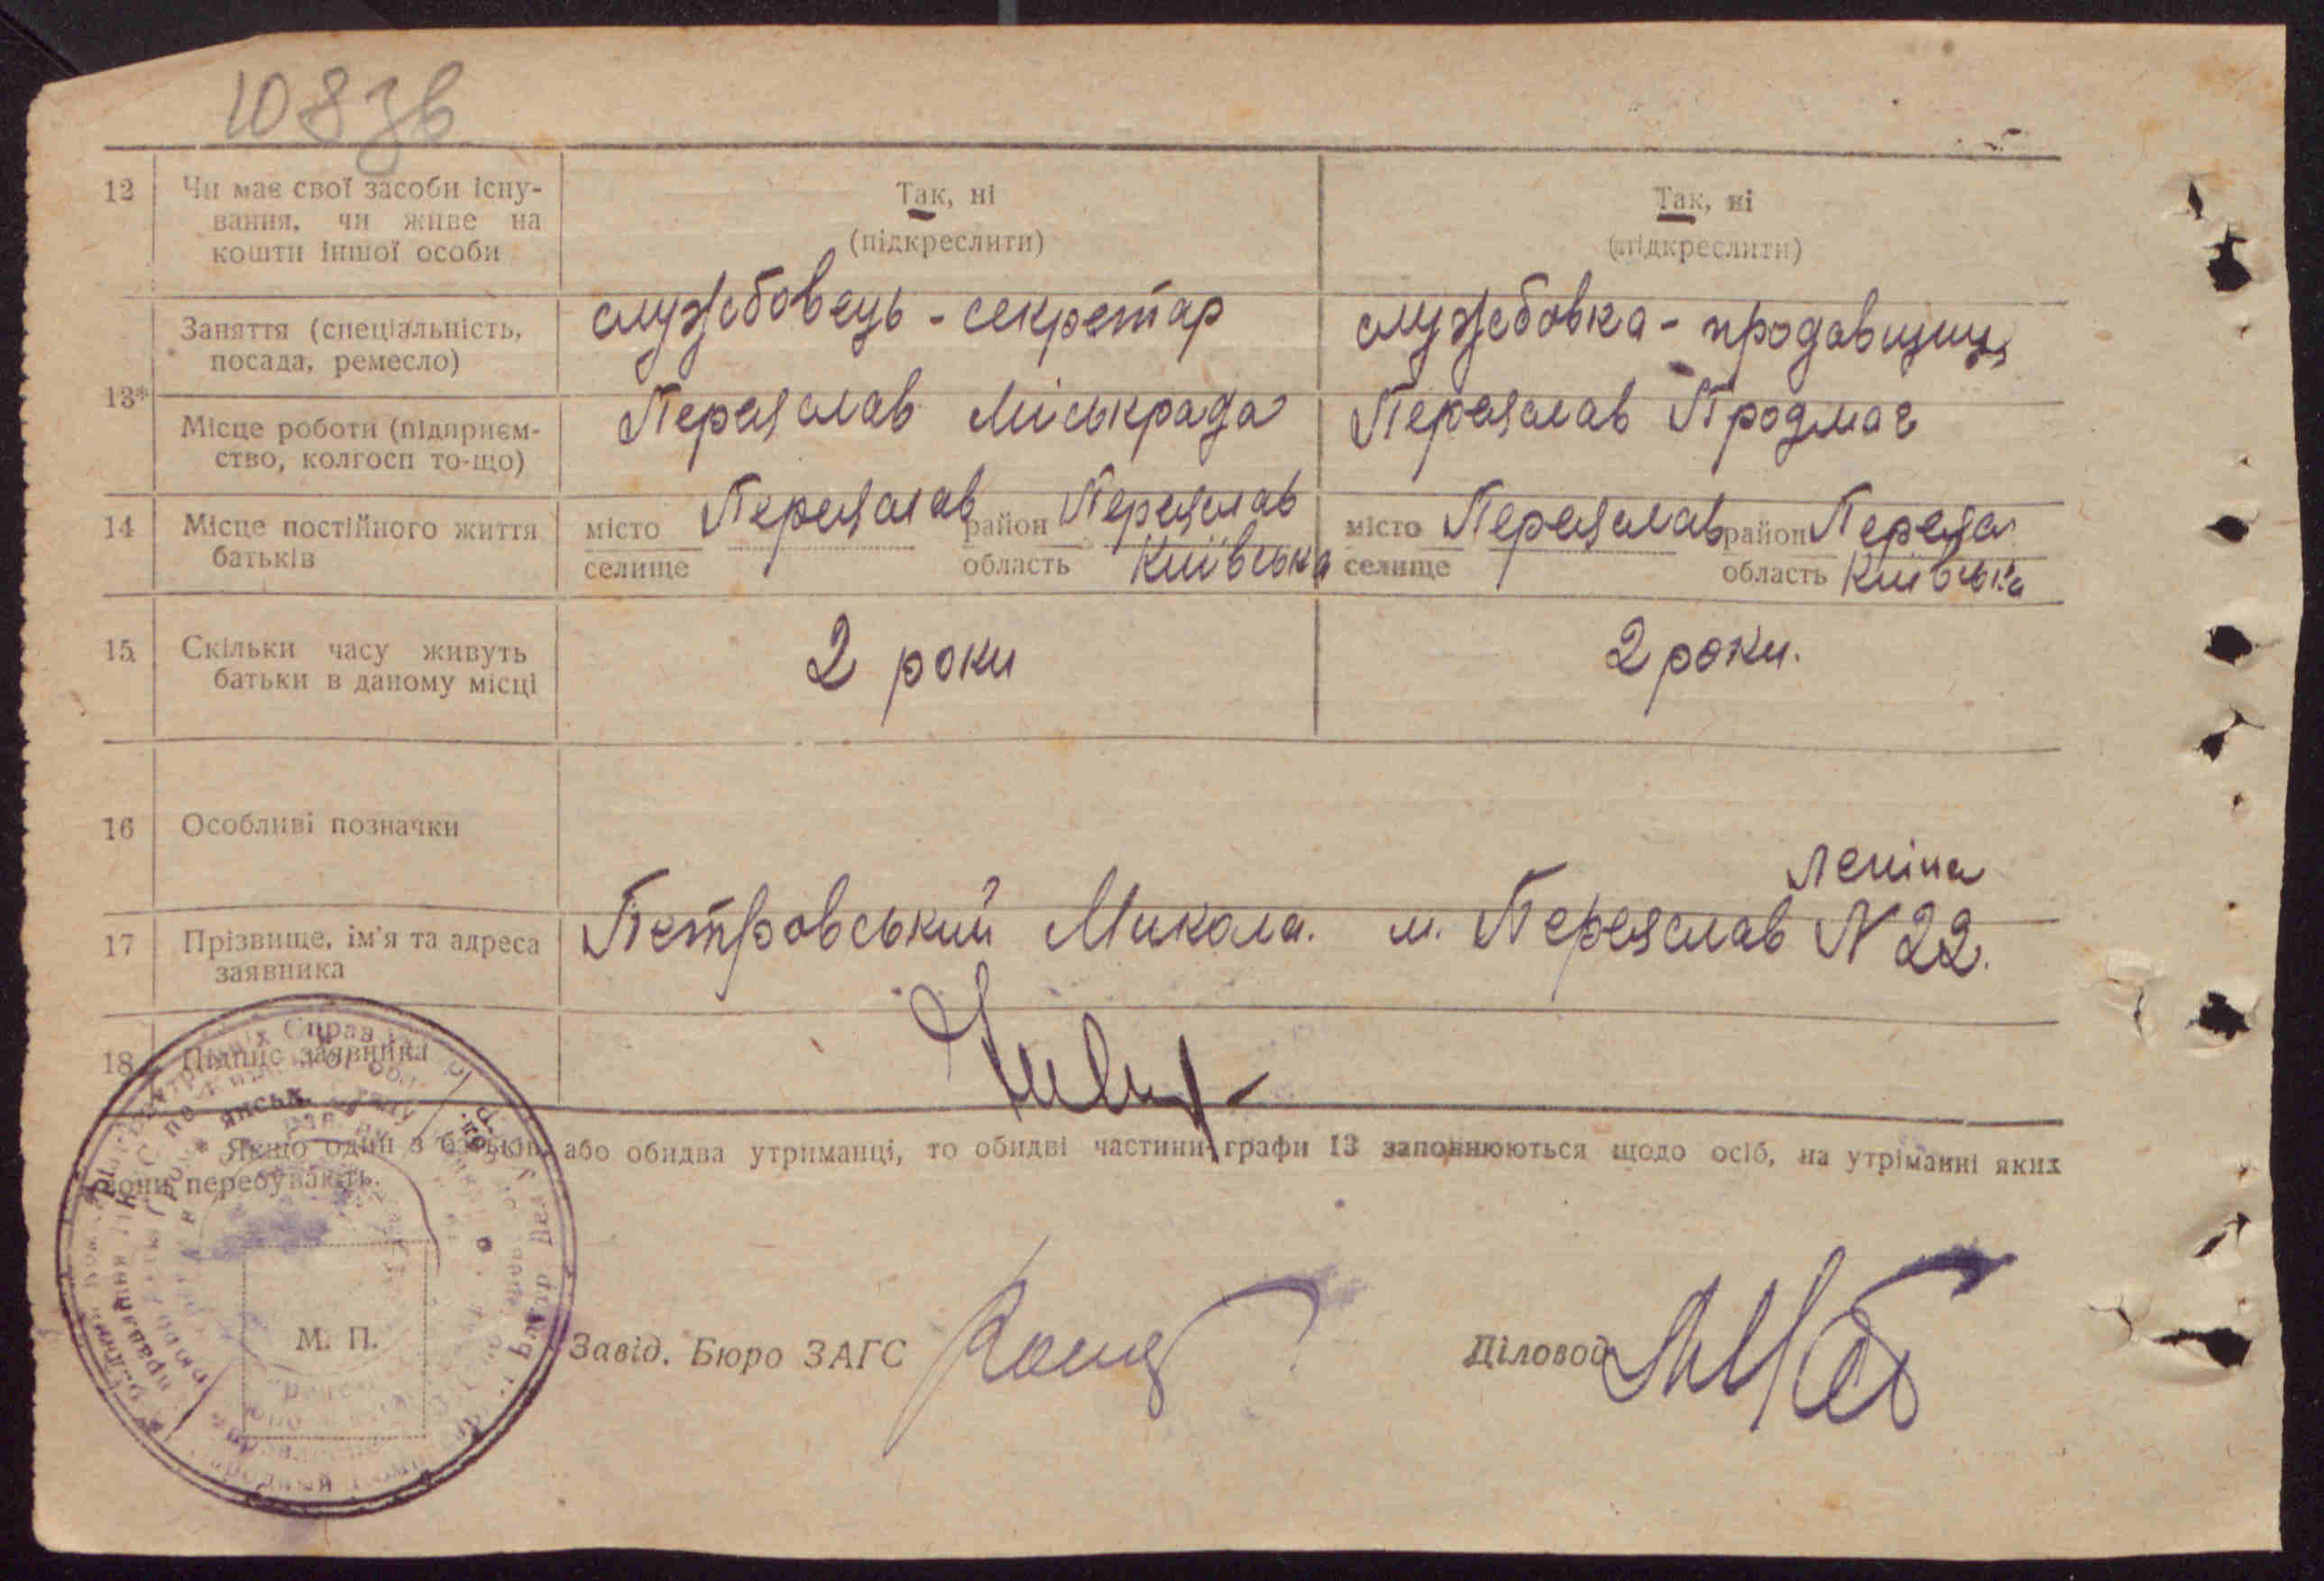 108 зв
12 Чи має свої засоби існу- Так, ні Так, ні
вання, чи живе на (підкреслити) (підкреслити)
кошти іншої особи
13* Заняття (спеціальність, службовець - секретар службовка - продавщиця
посада, ремесло)
Місце роботи (підприєм- Переяслав Міськрада Переяслав Продмаг
ство, колгосп то-що)
14 Місце постійного життя місто Переяслав район Переяслав місто Переяслав район Переяс
батьків селище область Київська селище область Київська
15 Скільки часу живуть 2 роки 2 роки.
батьки в даному місці
16 Особливі позначки
Леніна
17 Прізвище, ім'я та адреса Петровський Микола. м. Переяслав N 22.
заявника
18 Підпис заявника
Якщо один з батьків або обидва утриманці, то обидві частини графи 13 заповнюються щодо осіб, на утріманні яких
вони перебувають.
М. П. Завід. Бюро ЗАГС Діловод